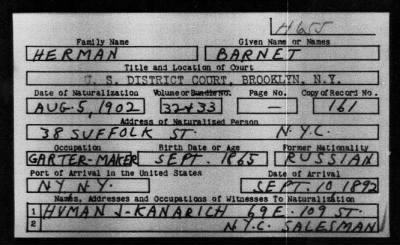 H655
Family Name Given Name or Names
HERMAN BARNET
Title and Location of Court
U. S. DISTRICT COURT, BROOKLYN, N.Y.
Date of Naturalization Volume or Bundle No. Page No. Copy of Record No.
AUG-5, 1902 32+33 — 161
Address of Naturalized Person
38 SUFFOLK ST. N.Y.C.
Occupation Birth Date or Age Former Nationality
GARTER-MAKER SEPT. 1865 RUSSIAN
Port of Arrival in the United States Date of Arrival
NY N.Y. SEPT. 10 1892
Names, Addresses and Occupations of Witnesses To Naturalization
1 HYMAN J-KANARICH 69 E. 109 ST.
2 N.Y.C. SALESMAN